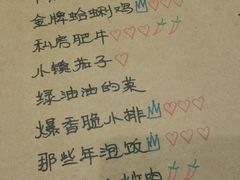 金牌蛤蜊鸡
私房肥牛
小馋茄子
绿油油的菜
爆香脆小排
那些年泡饭
炒肉